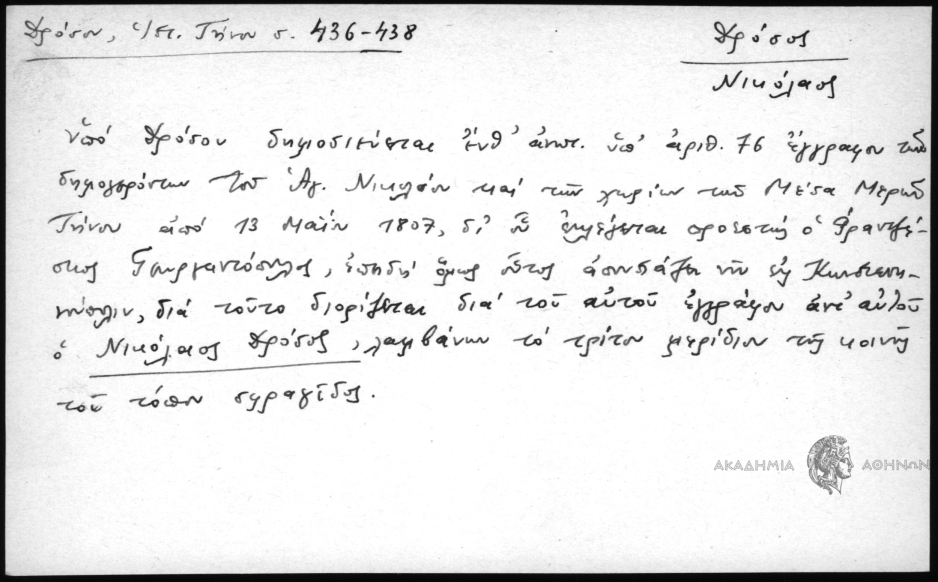 Δρόσου, Ἱστ. Τήνου σ. 436-438
Δρόσος
Νικόλαος
Ὑπό Δρόσου δημοσιεύεται ἔνθ' ἀνωτ. ὑπ' ἀριθ. 76 ἔγγραφον τῶν
δημογερόντων τοῦ Ἁγ. Νικολάου καί τῶν χωρίων τῶν Μέσα Μερῶν
Τήνου ἀπό 13 Μαΐου 1807, δι' οὗ ἐκλέγεται προεστώς ὁ Φραντζέ-
σκος Γεωργαντόπουλος, ἐπειδή ὅμως οὗτος ἀπουσιάζει νῦν εἰς Κωνσταντι-
νούπολιν, διά τοῦτο διορίζεται διά τοῦ αὐτοῦ ἐγγράφου ἀντ' αὐτοῦ
ὁ Νικόλαος Δρόσος, λαμβάνων τό τρίτον μερίδιον τῆς κοινῆς
τοῦ τόπου σφραγῖδος.
ΑΚΑΔΗΜΙΑ ΑΘΗΝΩΝ